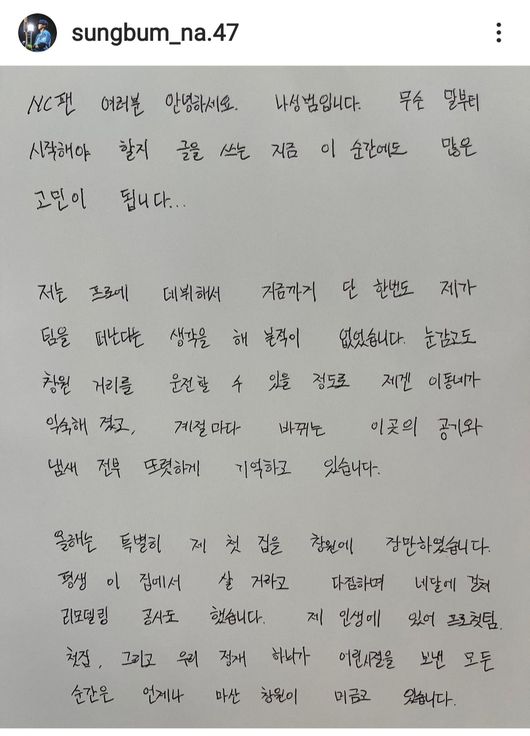 sungbum_na.47
NC팬 여러분 안녕하세요. 나성범입니다. 무슨 말부터
시작해야 할지 글을 쓰는 지금 이 순간에도 많은
고민이 됩니다...
저는 프로에 데뷔해서 지금까지 단 한번도 제가
팀을 떠난다는 생각을 해 본적이 없었습니다. 눈감고도
창원 거리를 운전할 수 있을 정도로 제겐 이동네가
익숙해 졌고, 계절마다 바뀌는 이곳의 공기와
냄새 전부 또렷하게 기억하고 있습니다.
올해는 특별히 제 첫 집을 창원에 장만하였습니다.
평생 이 집에서 살 거라고 다짐하며 네달에 걸쳐
리모델링 공사도 했습니다. 제 인생에 있어 프로첫팀,
첫집, 그리고 우리 정재 하늬가 어린시절을 보낸 모든
순간은 언제나 마산 창원이 머금고 있습니다.